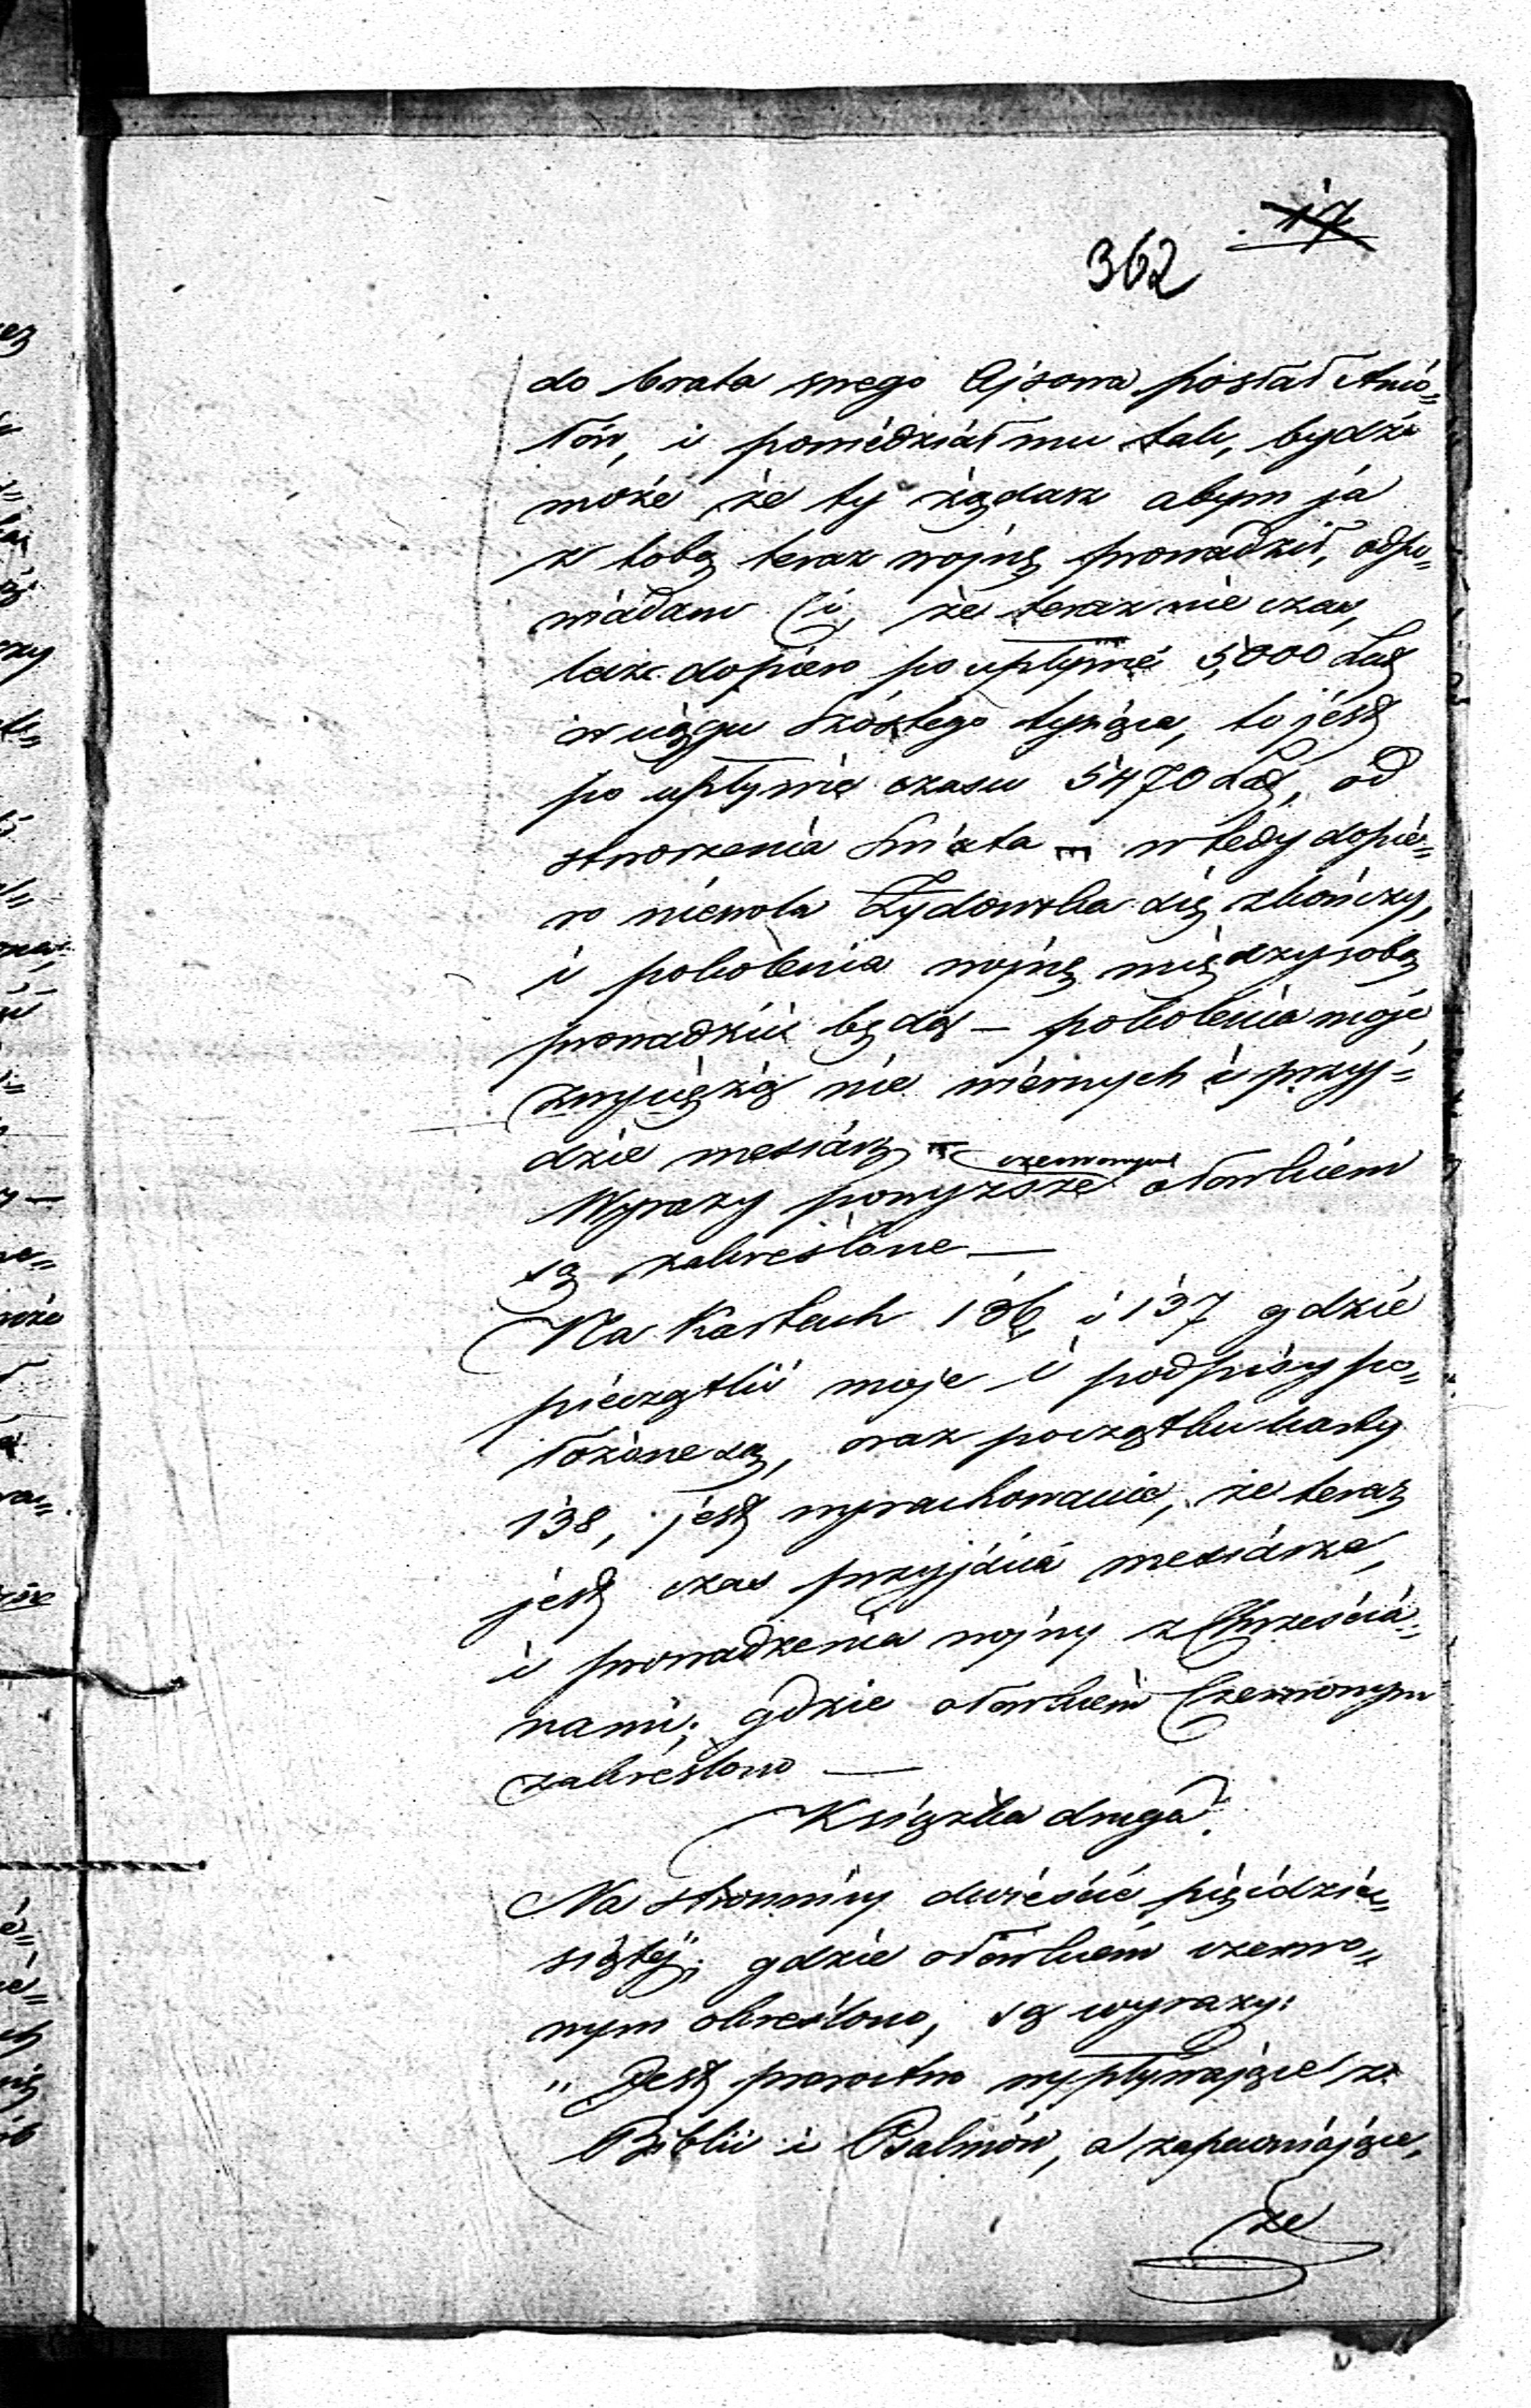 17
362
do brata swego Ajzowa posłał Anio=
łów, i powiedział mu tak, bydź
może że ty żądasz abym ja
z tobą teraz wojnę prowadził, odpo=
wiadam Ci, że teraz nie czas,
lecz dopiero po upływie 5,000 Lat
w ciągu szóstego tysiąca, to jest
po upływie czasu 5470 Lat, od
stworzenia Świata — wtedy dopie=
ro niewola Żydowska się skończy,
i pokolenia wojnę między sobą
prowadzić będą — pokolenia moje
zwyciężą nie wiernych i przyj=
dzie mesiasz —
czerwonym
Wyrazy powyższe ołówkiem
są zakreślone —
Na Kartach 136, i 137 gdzie
pieczątki moje i podpisy po=
łożone są, oraz początku karty
138, jest wyrachowanie, że teraz
jest czas przyjścia mesiasza,
i prowadzenia wojny z Chrześcia=
nami; gdzie ołówkiem Czerwonym
zakreślono —
Książka druga.
Na stronnicy dwieście pięćdzie=
siątej; gdzie ołówkiem czerwo=
nym okreslono, są wyrazy:
„Jest proroctwo wypływające z
Biblii i Psalmów, a zapewniające,
że